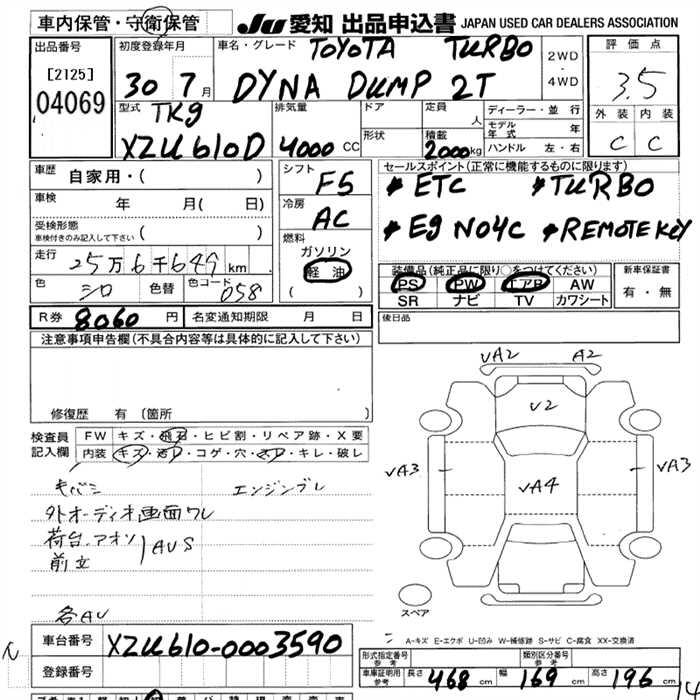 車内保管・守衛保管
JU 愛知 出品申込書 JAPAN USED CAR DEALERS ASSOCIATION
出品番号
[2125]
04069
初度登録年月
30 7月
車名・グレード TOYOTA TURBO
DYNA DUMP 2T
2WD
4WD
評価点
3.5
外装 内装
C C
型式 TKG
XZU610D
排気量
4000 CC
ドア
形状
定員
人
積載
2000kg
ディーラー・並行
モデル年式 年
ハンドル 左・右
車歴 自家用・( )
車検 年 月( 日)
受検形態
車検付きのみ記入して下さい ( )
走行 25万6千649km
色 シロ 色替 色コード 058
シフト
F5
冷房
AC
燃料
ガソリン
軽油
( )
セールスポイント(正常に機能するものに限ります)
* ETC * TURBO
* Eg N04C * REMOTE KEY
装備品(純正品に限り○をつけてください)
PS PW エアB AW
SR ナビ TV カワシート
新車保証書
有・無
R券 8060円 名変通知期限 月 日
後日品
注意事項申告欄(不具合内容等は具体的に記入して下さい)
修復歴 有 (箇所 )
検査員記入欄
FW キズ・飛石・ヒビ割・リペア跡・X要
内装 キズ・汚レ・コゲ・穴・スレ・キレ・破レ
エンジンブレ
外オーディオ画面ワレ
荷台、アオリ
前立
AUS
各AU
VA2 A2
V2
VA3 VA4 VA3
スペア
A-キズ E-エクボ U-凹み W-補修跡 S-サビ C-腐食 XX-交換済
車台番号 XZU610-0003590
登録番号
形式指定番号 参考
類別区分番号 参考
車庫証明用 参考 長さ 468 cm 幅 169 cm 高さ 196 cm